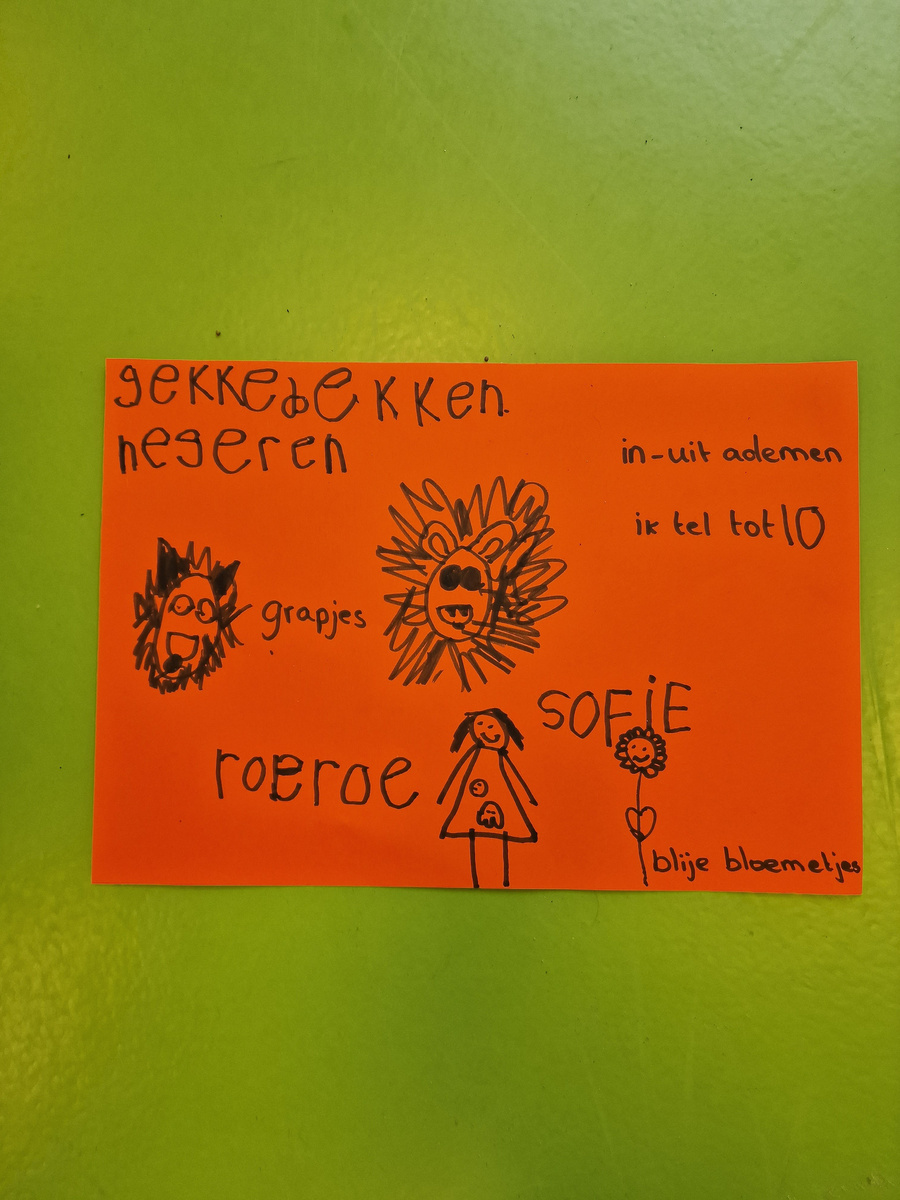 gekkebekken
negeren
in-uit ademen
ik tel tot 10
grapjes
SOFiE
roeroe
blije bloemetjes